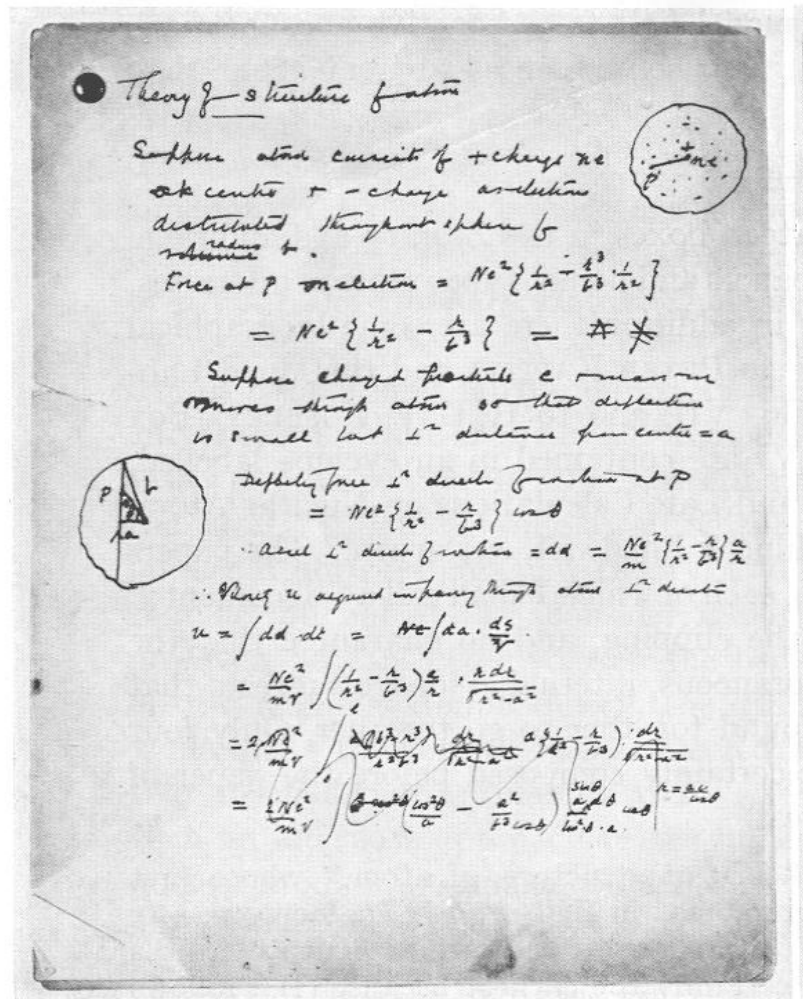 Theory of structure of atom
Suppose atom consists of + charge ne
at centre + - charge as electrons
distributed throughout sphere of
radius b.
+ ne
P
Force at P on electron = Ne² { 1/r² - r³/b³ · 1/r² }
= Ne² { 1/r² - r/b³ } =
Suppose charged particle e + mass m
moves through atom so that deflection
is small but ⊥ʳ distance from centre = a
P b
a
Deflecting force ⊥ʳ direction of motion at P
= Ne² { 1/r² - r/b³ } cos θ
∴ accel ⊥ʳ direction of motion = = Ne²/m { 1/r² - r/b³ } a/r
∴ Velocity u acquired in passing through atom ⊥ʳ direction
u = ∫ · dt = ∫ · ds/V
= Ne²/mV ∫ ( 1/r² - r/b³ ) a/r · r dr/√(r² - a²)
= 2 Ne²/mV ∫ a { 1/r² - r/b³ } · dr/√(r² - a²)
= 2Ne²/mV ∫ ( cos²θ/a - a²/b³ cos θ )